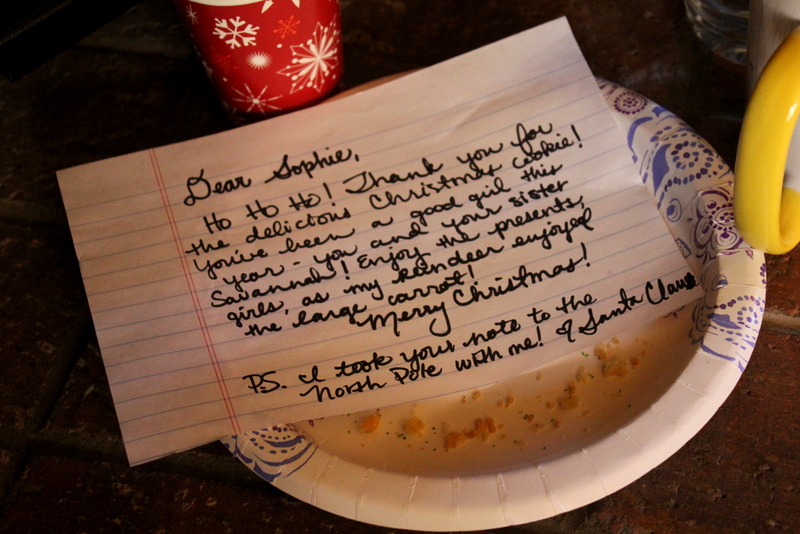 Dear Sophie,
Ho Ho Ho! Thank you for
the delicious Christmas cookie!
You've been a good girl this
year - you and your sister
Savannah! Enjoy the presents,
girls, as my Reindeer enjoyed
the large carrot!
Merry Christmas!
P.S. I took your note to the
North Pole with me! ♡ Santa Claus